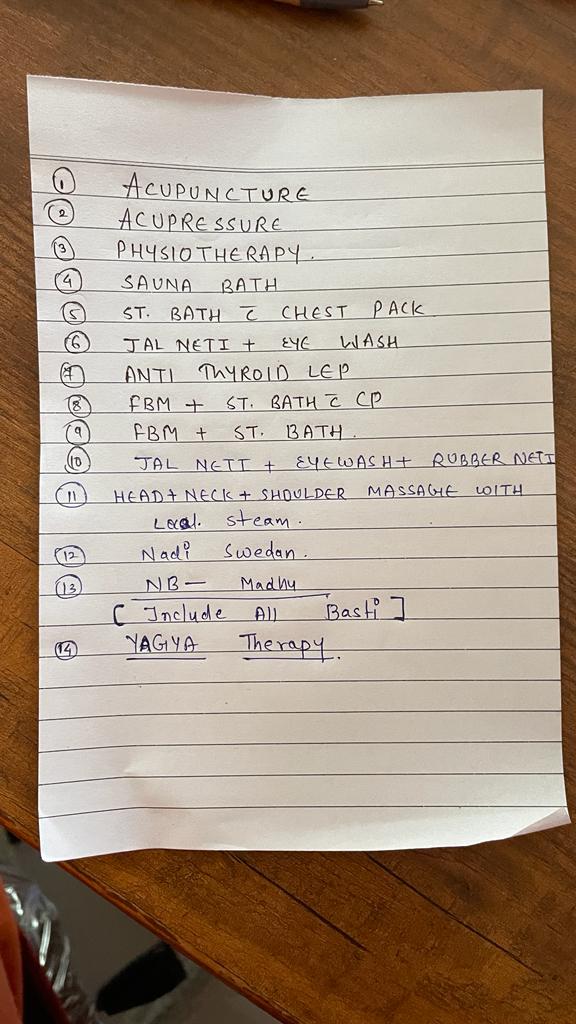 ① ACUPUNCTURE
② ACUPRESSURE
③ PHYSIOTHERAPY.
④ SAUNA BATH
⑤ ST. BATH c̄ CHEST PACK
⑥ JAL NETI + EYE WASH
⑦ ANTI THYROID LEP
⑧ FBM + ST. BATH c̄ CP
⑨ FBM + ST. BATH.
⑩ JAL NETI + EYEWASH + RUBBER NETI
⑪ HEAD + NECK + SHOULDER MASSAGE WITH
Local. steam.
⑫ Nadi Swedan.
⑬ NB — Madhu
[ Include All Basti ]
⑭ YAGYA Therapy.